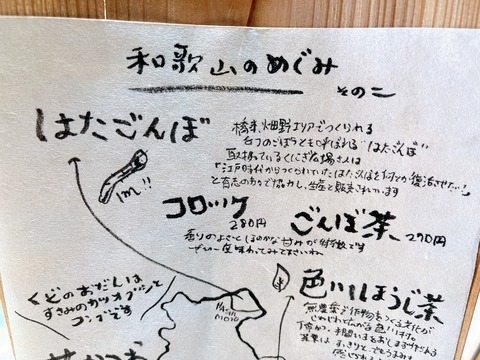 和歌山のめぐみ
その二
はたごんぼ
1m!!
橋本、畑野エリアでつくられる
幻のごぼうとも呼ばれる"はたごんぼ"
取扱っているくにぎ広場さんは
「江戸時代からつくられていたはたごんぼを何とか復活させたい」
と有志の方で協力し、生産と販売されています
コロッケ
280円
ごんぼ茶
290円
香りのよさと ほのかな甘みが特徴です
ぜひ一度味わってみて下さいね
色川ほうじ茶
無農薬で作物をつくる
くどのおだんは
すさみのカツオブシと
コンブです